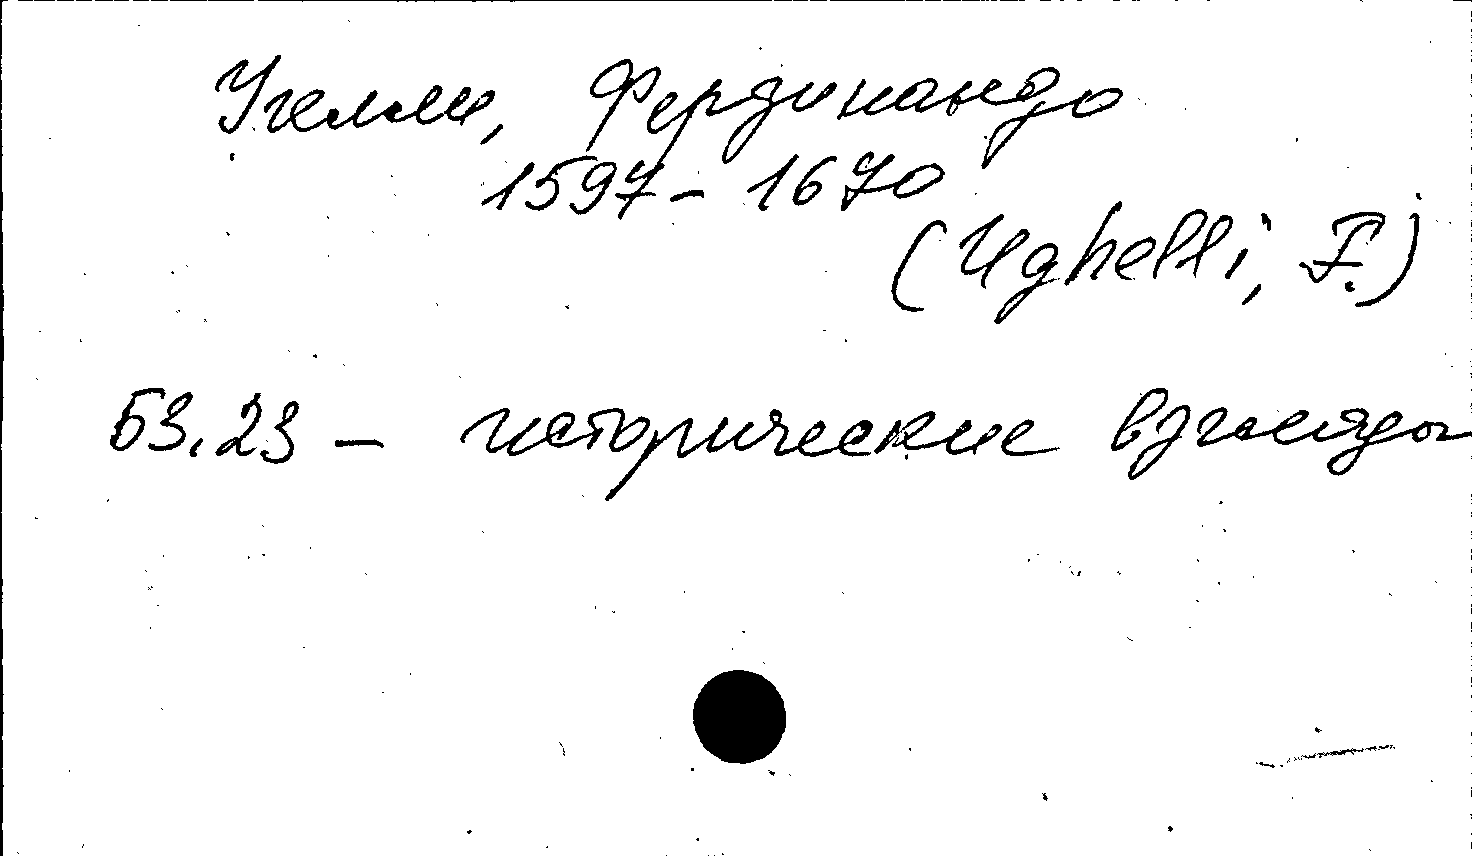 Угелли, Фердинандо
1597-1670
(Ughelli, F.)
63.23 – исторические взгляды